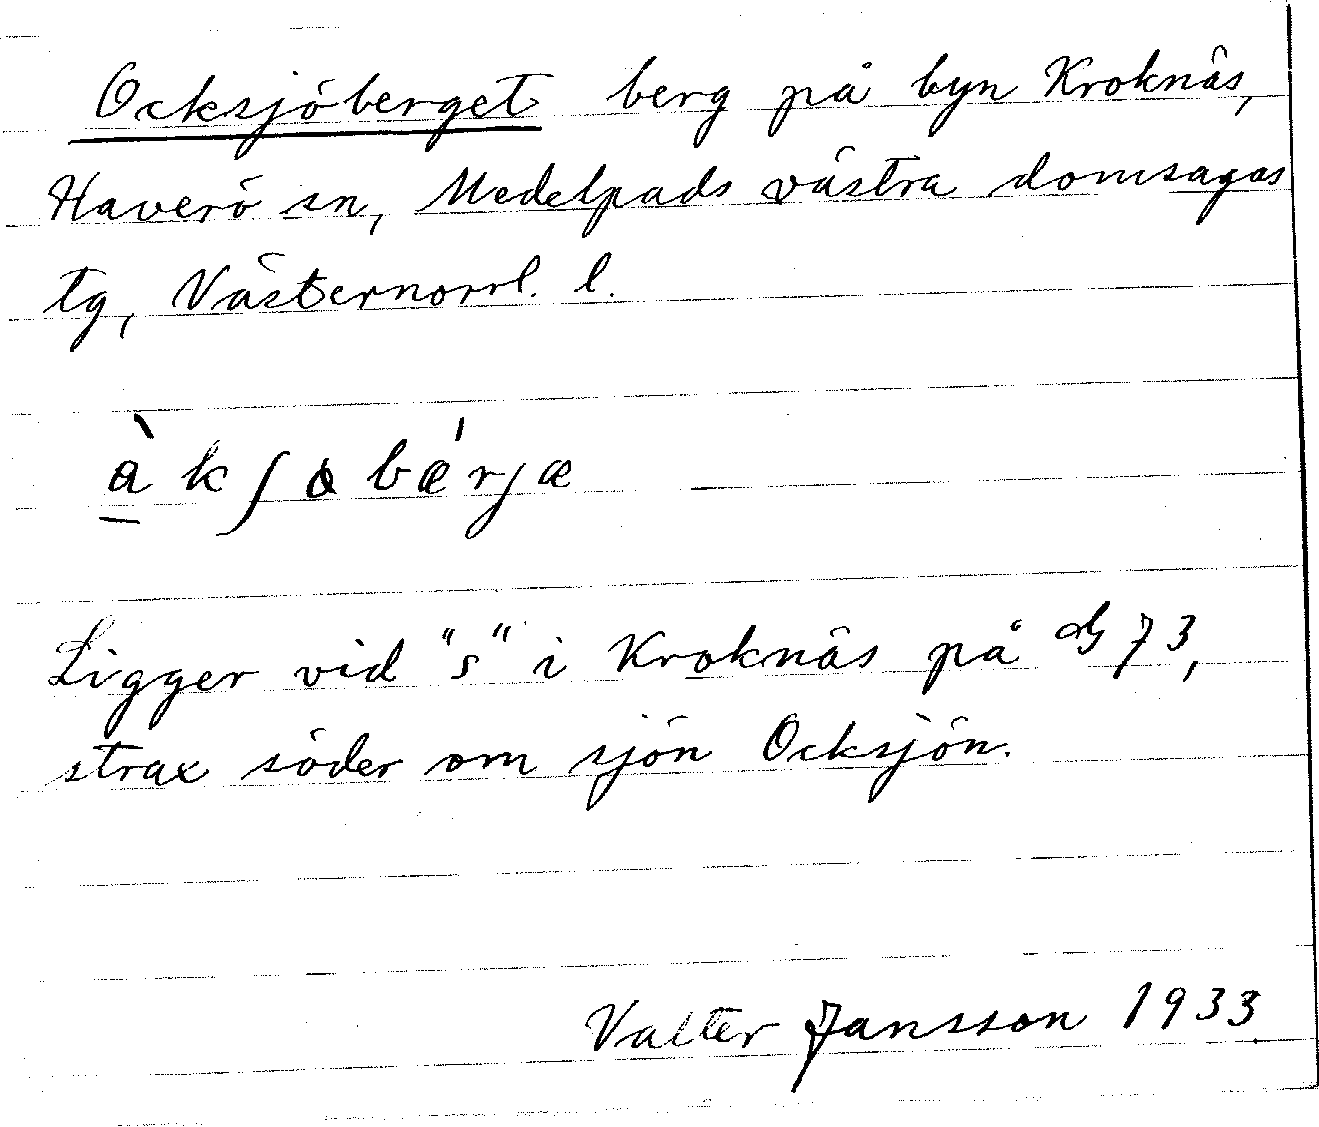 Ocksjöberget berg på byn Kroknäs,
Haverö sn, Medelpads västra domsagas
tg, Västernorrl. l.
àkʃobǽrjæ
Ligger vid "s" i Kroknäs på G 73,
strax söder om sjön Ocksjön.
Valter Jansson 1933